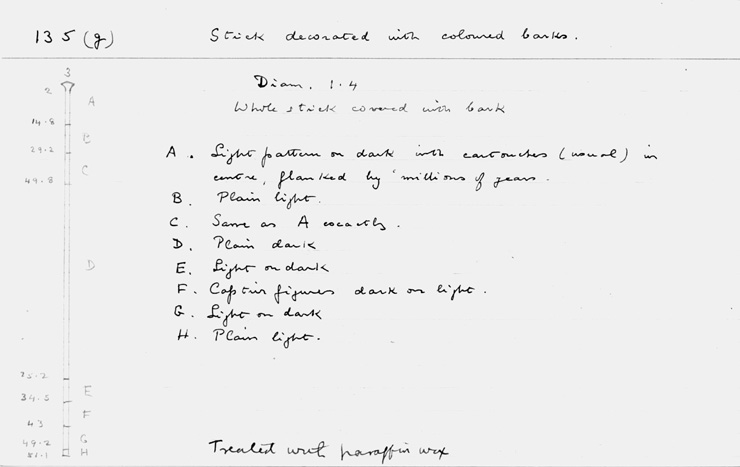 135 (g)
Stick decorated with coloured barks.
Diam. 1.4
Whole stick covered with bark
3
2
A
14.8
B
29.2
C
49.8
D
E
34.5
F
43
G
49.2
H
A. Light pattern on dark with cartouches (usual) in
centre, flanked by 'millions of years.
B. Plain light.
C. Same as A exactly.
D. Plain dark
E. Light on dark
F. Captive figures dark on light.
G. Light on dark
H. Plain light.
Treated with paraffin wax